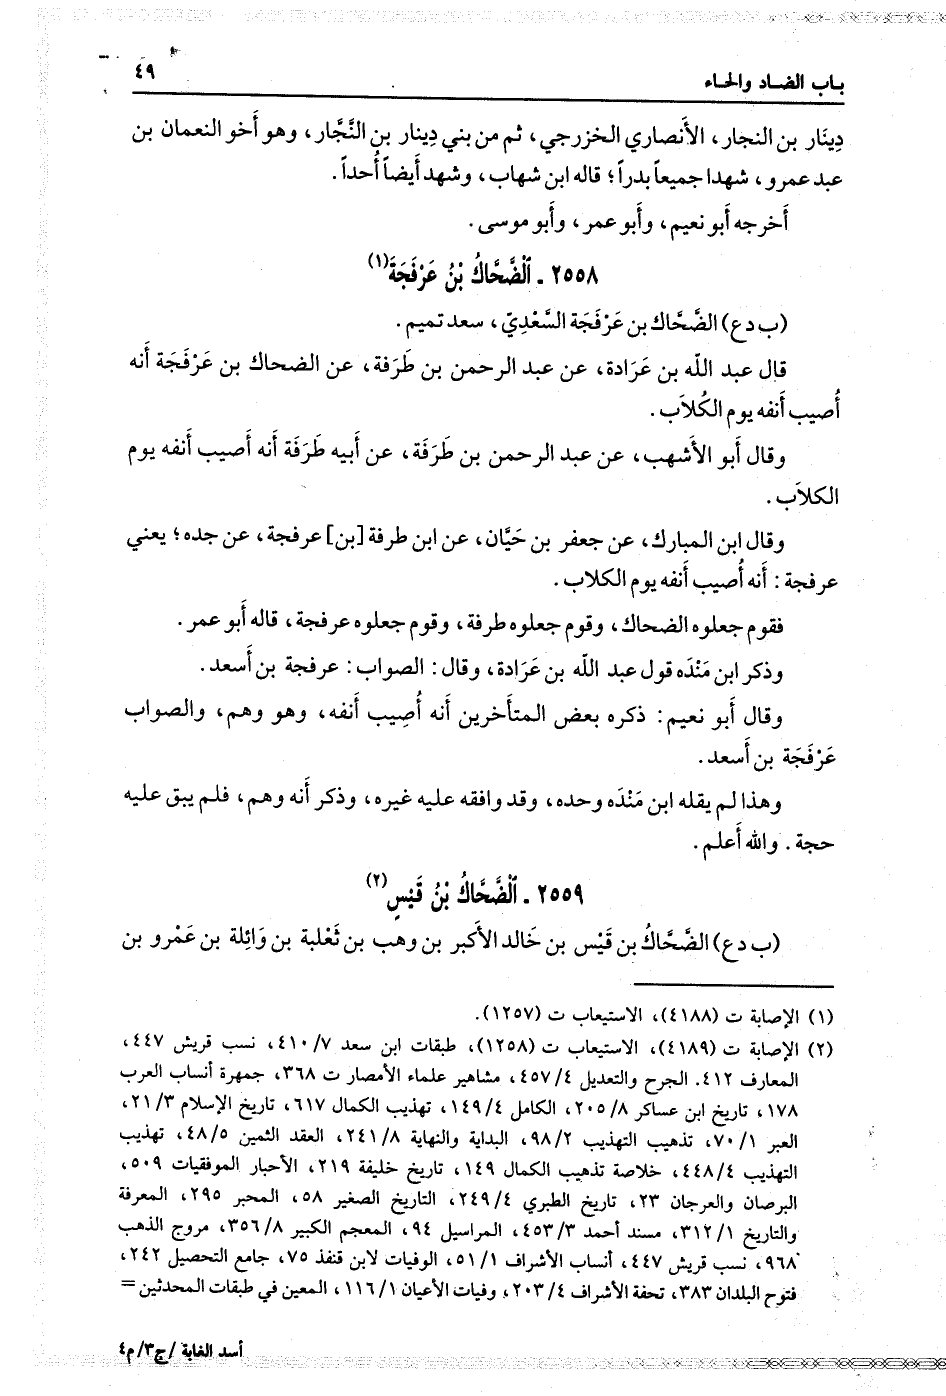 باب الضاد والحاء ٤٩
دِينَار بن النجار، الأَنصاري الخزرجي، ثم من بني دِينار بن النَّجَّار، وهو أَخو النعمان بن
عبد عمرو، شهدا جميعاً بدراً؛ قاله ابن شهاب، وشهد أَيضاً أُحداً.
أَخرجه أَبو نعيم، وأَبو عمر، وأَبو موسى.
٢٥٥٨ ـ ٱلْضَّحَّاكُ بْنُ عَرْفَجَةَ(١)
(ب د ع) الضَّحَّاك بن عَرْفَجَة السَّعْدِيّ، سعد تميم.
قال عبد اللّه بن عَرَادة، عن عبد الرحمن بن طَرَفة، عن الضحاك بن عَرْفَجَة أَنه
أُصيب أَنفه يوم الكُلاَب.
وقال أَبو الأَشهب، عن عبد الرحمن بن طَرَفَة، عن أَبيه طَرَفَة أَنه أَصيب أَنفه يوم
الكلاَب.
وقال ابن المبارك، عن جعفر بن حَيَّان، عن ابن طرفة [بن] عرفجة، عن جده؛ يعني
عرفجة: أَنه أُصيب أَنفه يوم الكلاب.
فقوم جعلوه الضحاك، وقوم جعلوه طرفة، وقوم جعلوه عرفجة، قاله أَبو عمر.
وذكر ابن مَنْدَه قول عبد اللّه بن عَرَادة، وقال: الصواب: عرفجة بن أَسعد.
وقال أَبو نعيم: ذكره بعض المتأَخرين أَنه أُصِيب أَنفه، وهو وهم، والصواب
عَرْفَجَة بن أَسعد.
وهذا لم يقله ابن مَنْدَه وحده، وقد وافقه عليه غيره، وذكر أَنه وهم، فلم يبق عليه
حجة. والله أَعلم.
٢٥٥٩ ـ ٱلْضَّحَّاكُ بْنُ قَيْسٍ(٢)
(ب د ع) الضَّحَّاكُ بن قَيْس بن خَالد الأَكبر بن وهب بن ثَعْلبة بن وَائِلة بن عَمْرو بن
(١) الإصابة ت (٤١٨٨)، الاستيعاب ت (١٢٥٧).
(٢) الإصابة ت (٤١٨٩)، الاستيعاب ت (١٢٥٨)، طبقات ابن سعد ٤١٠/٧، نسب قريش ٤٤٧،
المعارف ٤١٢. الجرح والتعديل ٤٥٧/٤، مشاهير علماء الأمصار ت ٣٦٨، جمهرة أنساب العرب
١٧٨، تاريخ ابن عساكر ٢٠٥/٨، الكامل ١٤٩/٤، تهذيب الكمال ٦١٧، تاريخ الإسلام ٢١/٣،
العبر ٧٠/١، تذهيب التهذيب ٩٨/٢، البداية والنهاية ٢٤١/٨، العقد الثمين ٤٨/٥، تهذيب
التهذيب ٤٤٨/٤، خلاصة تذهيب الكمال ١٤٩، تاريخ خليفة ٢١٩، الأخبار الموفقيات ٥٠٩،
البرصان والعرجان ٢٣، تاريخ الطبري ٢٤٩/٤، التاريخ الصغير ٥٨، المحبر ٢٩٥، المعرفة
والتاريخ ٣١٢/١، مسند أحمد ٤٥٣/٣، المراسيل ٩٤، المعجم الكبير ٣٥٦/٨، مروج الذهب
٩٦٨، نسب قريش ٤٤٧، أنساب الأشراف ٥١/١، الوفيات لابن قنفذ ٧٥، جامع التحصيل ٢٤٢،
فتوح البلدان ٣٨٣، تحفة الأشراف ٢٠٣/٤، وفيات الأعيان ١١٦/١، المعين في طبقات المحدثين =
أسد الغابة /ج٣/م٤